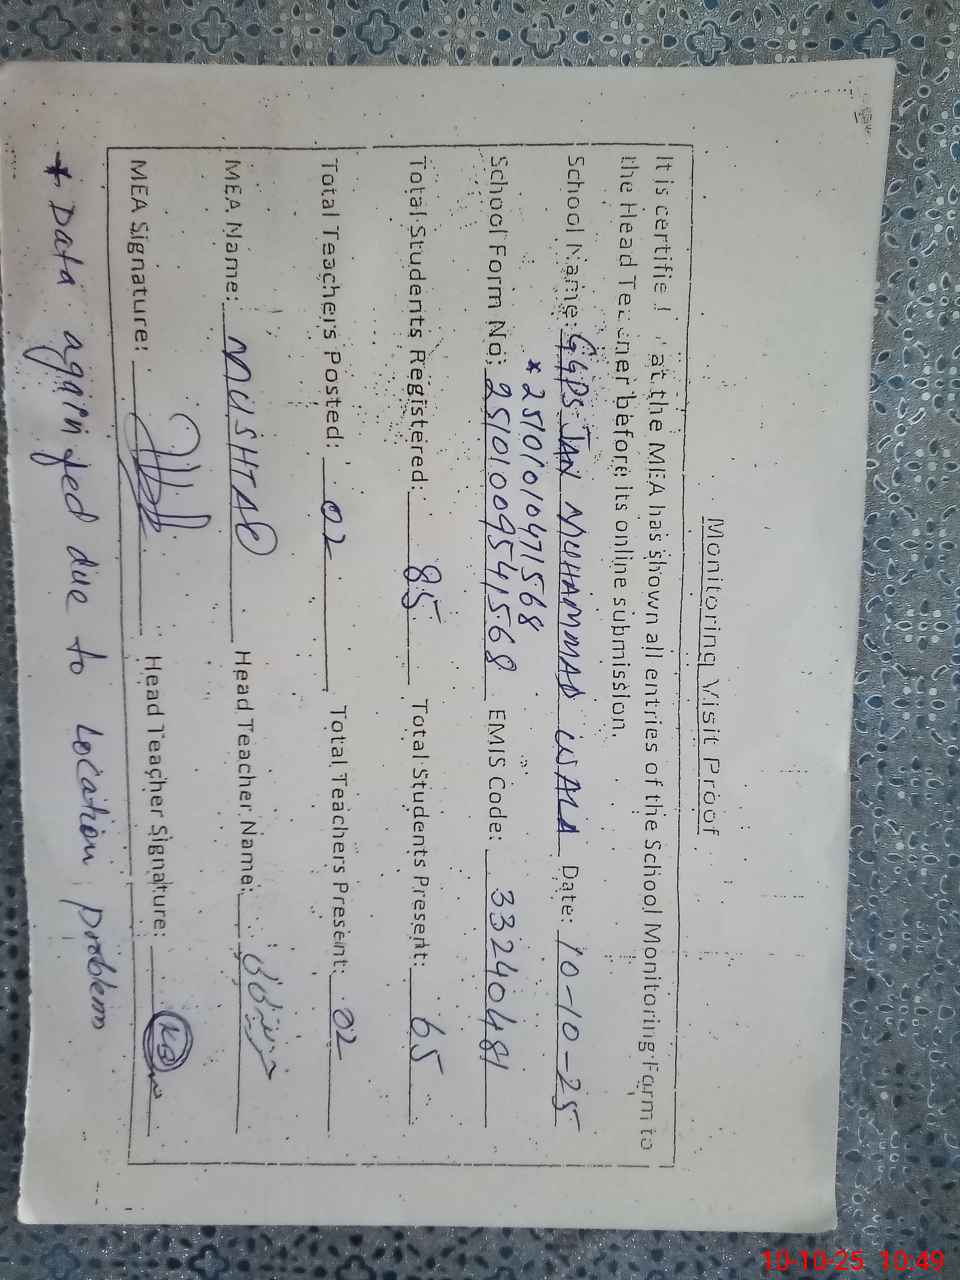 Monitoring Visit Proof
It is certifie at the MEA has shown all entries of the School Monitoring Form to
the Head Teacher before its online submission.
School Name: GGPS JAN MUHAMMAD WALA Date: 10-10-25
* 25101010471568
School Form No: 25101009541568 EMIS Code: 33240481
Total Students Registered: 85 Total Students Present: 65
Total Teachers Posted: 02 Total Teachers Present: 02
MEA Name: MUSHTAQ Head Teacher Name:
MEA Signature: Head Teacher Signature:
* Data again fed due to Location problem
10-10-25 10:49